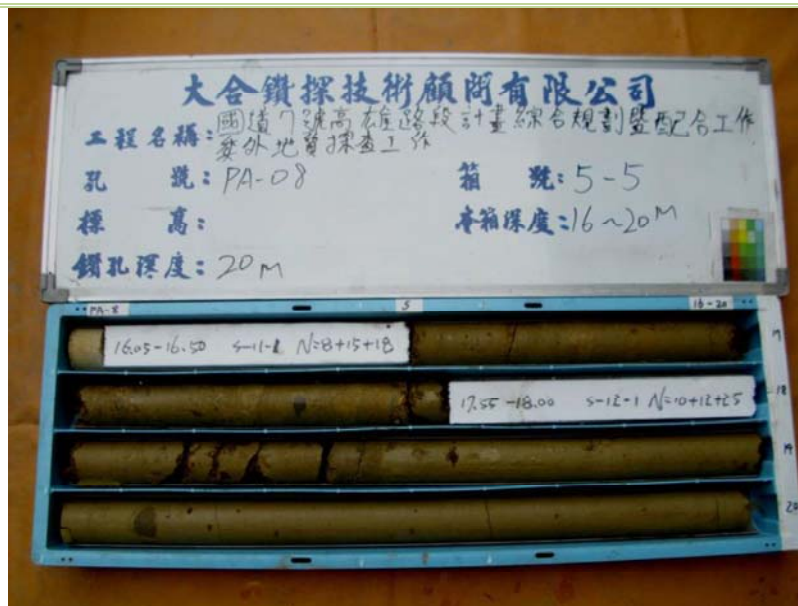 大合鑽探技術顧問有限公司
工程名稱：國道7號高雄路段計畫綜合規劃暨配合工作
委外地質探查工作
孔 號：PA-08 箱 號：5-5
標 高： 本箱深度：16~20M
鑽孔深度：20M
PA-8 5 16-20
16.05-16.50 S-11-1 N=8+15+18 17
17.55-18.00 S-12-1 N=10+12+25 18
19
20